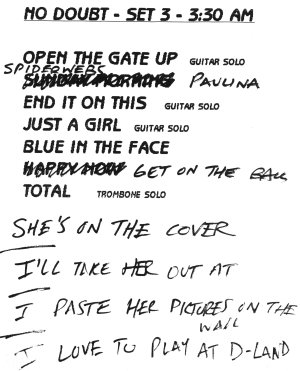 NO DOUBT - SET 3 - 3:30 AM
OPEN THE GATE UP GUITAR SOLO
SPIDERWEBS
SUNDAY MORNING PAULINA
END IT ON THIS GUITAR SOLO
JUST A GIRL GUITAR SOLO
BLUE IN THE FACE
HAPPY NOW GET ON THE BALL
TOTAL TROMBONE SOLO
SHE'S ON THE COVER
I'LL TAKE HER OUT AT
I PASTE HER PICTURES ON THE
WALL
I LOVE TO PLAY AT D-LAND